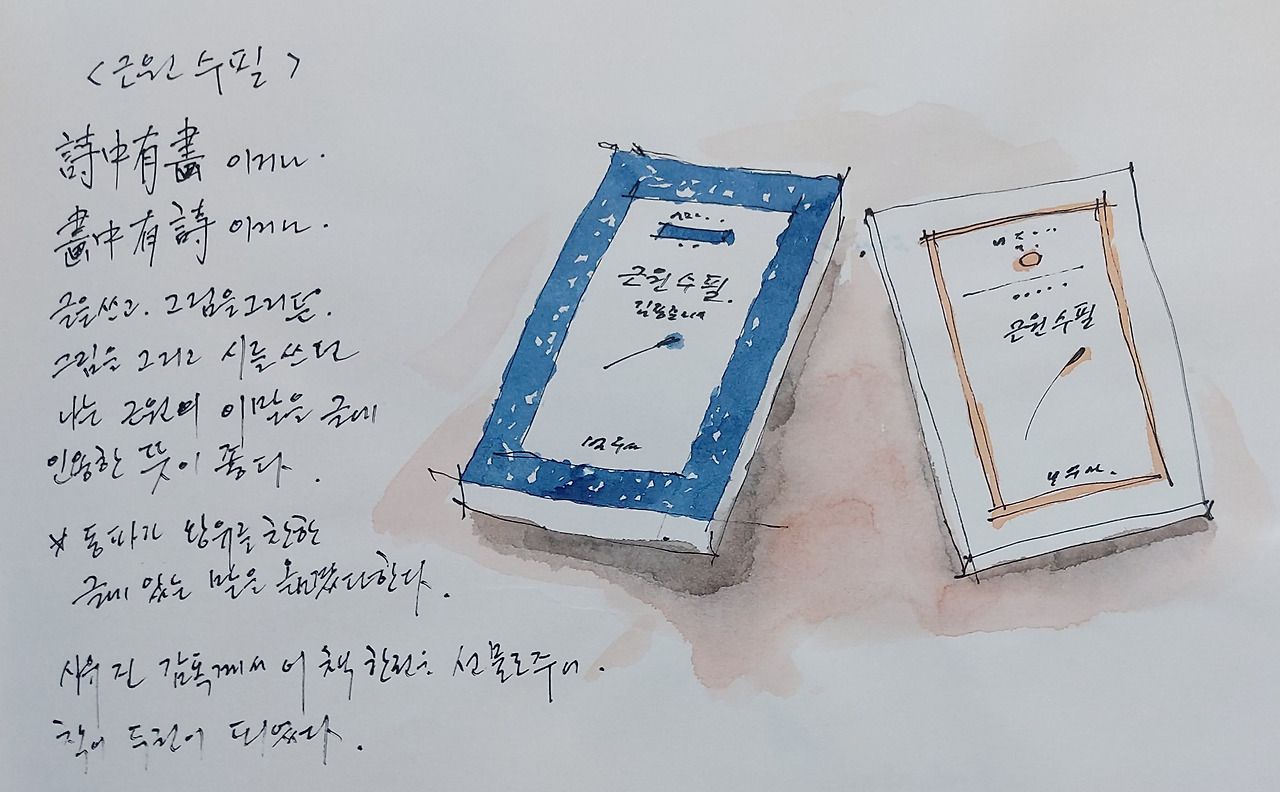 <근원 수필>
詩中有畵 이거나.
畵中有詩 이거나.
글을쓰고. 그림을그리면.
그림을 그리고 시를 쓰던
나는 근원의 이말을 글에
인용한 뜻이 좋다.
* 동파가 왕유를 찬한
글에 있는 말을 옮겼다한다.
사위 진 감독께서 이 책 한권을 선물로주어.
책이 두권이 되었다.
근원 수필.
근원 수필